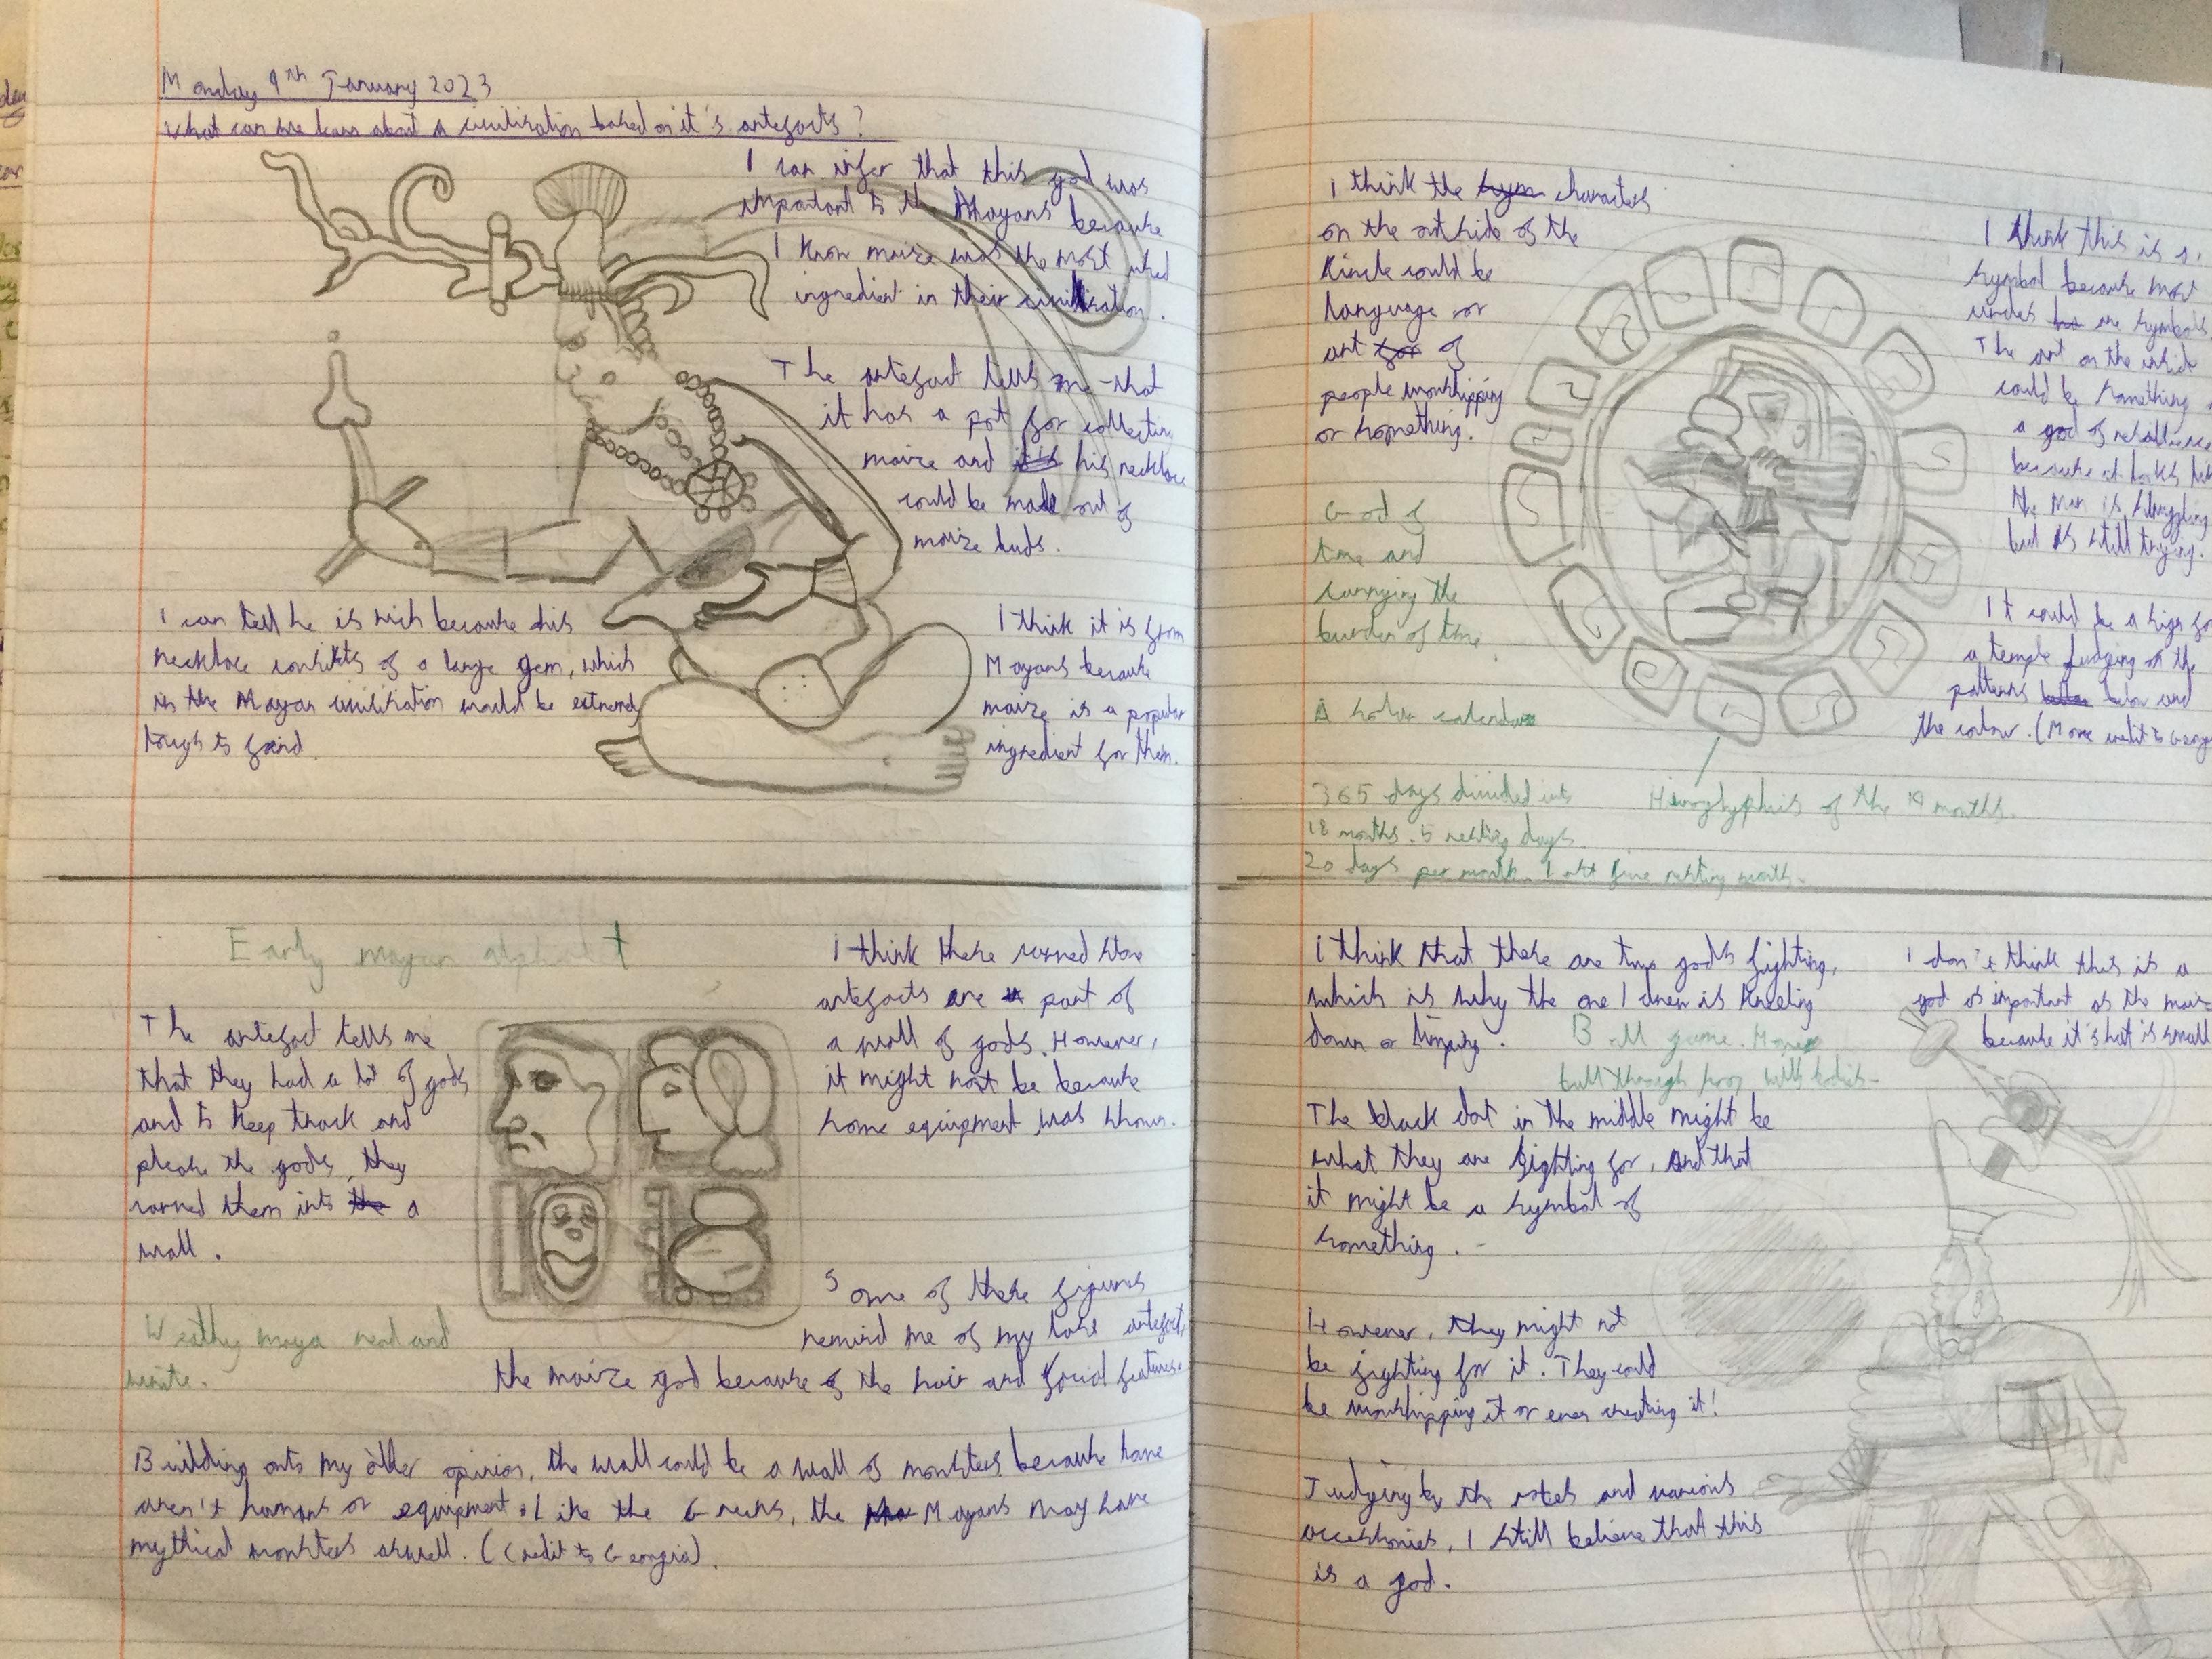 Monday 9th January 2023
What can we learn about a civilisation based on it's artefacts?
I can infer that this god was
important to the Mayans because
I know maize was the most used
ingredient in their civilisation.
The artefact tells me that
it has a pot for collecting
maize and his necklace
could be made out of
maize buds.
I can tell he is rich because his
necklace consists of a large gem, which
in the Mayan civilisation would be extremely
tough to find.
I think it is from
Mayans because
maize is a popular
ingredient for them.
Early mayan alphabet
The artefact tells me
that they had a lot of gods
and to keep track and
please the gods, they
carved them into a
wall.
Wealthy maya read and
write.
I think these carved stone
artefacts are part of
a wall of gods. However,
it might not be because
some equipment was shown.
Some of these figures
remind me of my last artefact,
the maize god because of the hair and facial features.
Building onto my older opinion, the wall could be a wall of monsters because some
aren't humans or equipment. Like the Greeks, the Mayans may have
mythical monsters aswell. (Credit to Georgia).
I think the characters
on the outside of the
circle could be
language or
art of
people worshipping
or something.
God of
time and
carrying the
burden of time
A solar calendar
365 days divided into
18 months. 5 resting days.
20 days per month. 1 five resting month.
Hieroglyphics of the 19 months.
I think this is a
symbol because most
circles are symbols.
The art on the inside
could be something
a god of
because it looks like
the man is struggling
but is still trying.
It could be a sign for
a temple judging on the
patterns below and
the colour. (More credit to
I think that there are two gods fighting,
which is why the one I drew is kneeling
down or limping.
Ball game. Move
ball through hoop with bodies.
The black dot in the middle might be
what they are fighting for, and that
it might be a symbol of
something.
However, they might not
be fighting for it. They could
be worshipping it or even creating it!
Judging by the robes and various
accessories, I still believe that this
is a god.
I don't think this is a
god as important as the maize
because it's hat is small